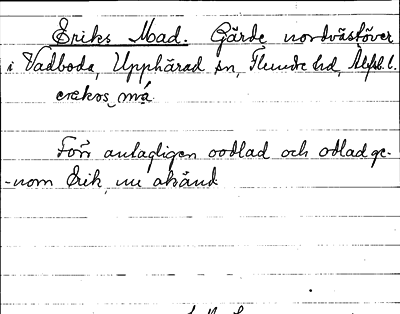 Eriks Mad. Gärde nordväst över
i Vadboda, Upphärad sn, Flundre hd, Älfsb. l.
erekos má
Förr antagligen oodlad och odlad ge-
-nom Erik, nu okänd